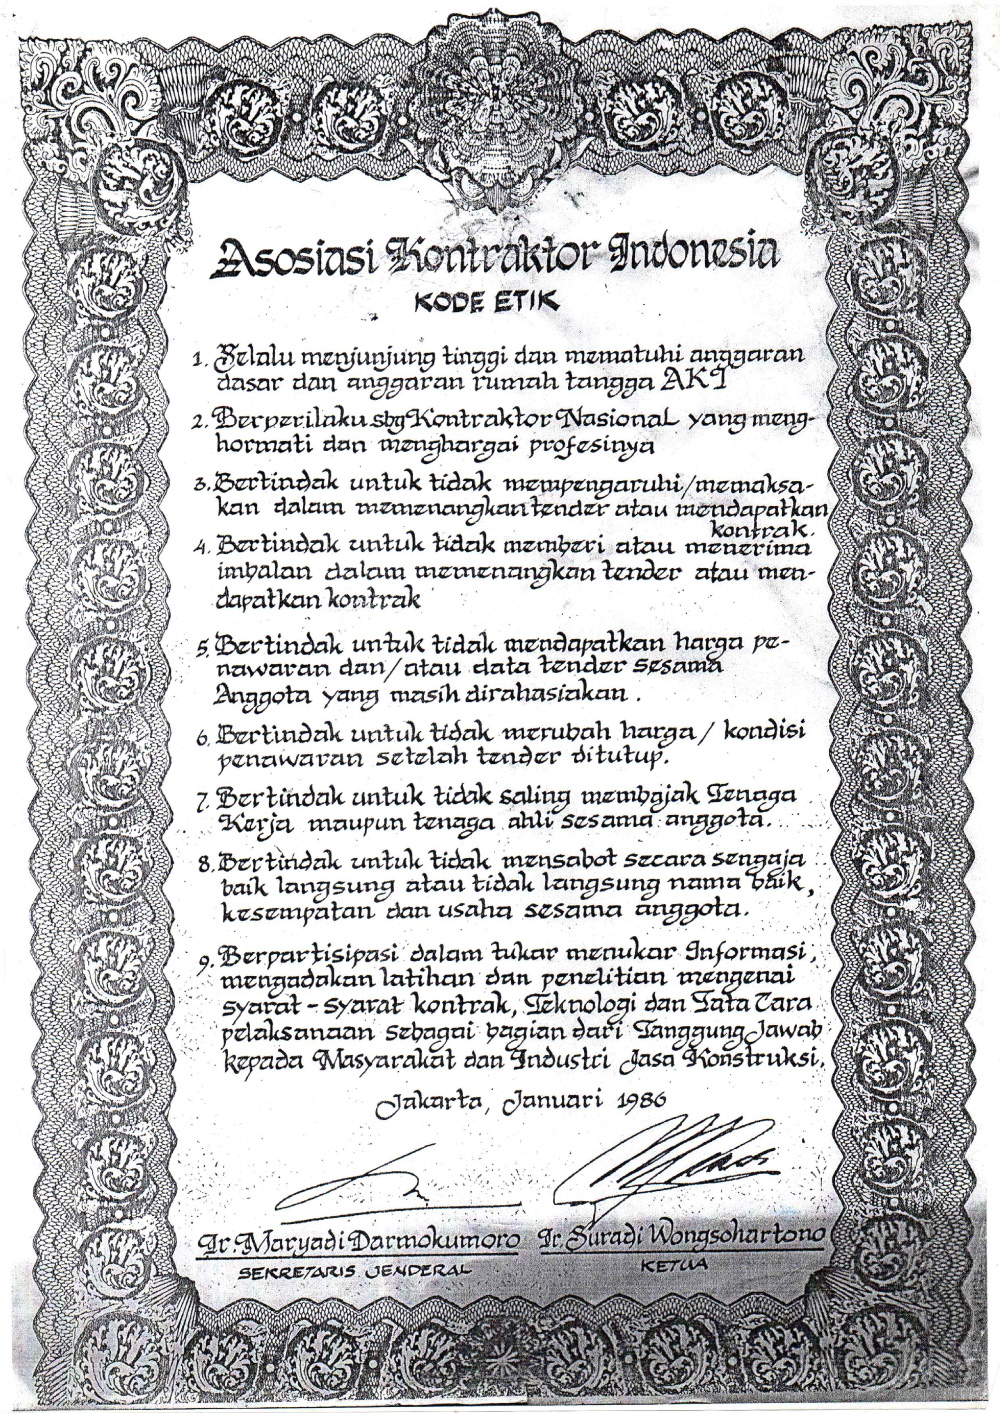 Asosiasi Kontraktor Indonesia
KODE ETIK
1. Selalu menjunjung tinggi dan mematuhi anggaran
dasar dan anggaran rumah tangga AKI
2. Berperilaku sbg Kontraktor Nasional yang meng-
hormati dan menghargai profesinya
3. Bertindak untuk tidak mempengaruhi/memaksa-
kan dalam memenangkan tender atau mendapatkan
kontrak.
4. Bertindak untuk tidak memberi atau menerima
imbalan dalam memenangkan tender atau men-
dapatkan kontrak
5. Bertindak untuk tidak mendapatkan harga pe-
nawaran dan/atau data tender sesama
Anggota yang masih dirahasiakan.
6. Bertindak untuk tidak merubah harga/kondisi
penawaran setelah tender ditutup.
7. Bertindak untuk tidak saling membajak Tenaga
Kerja maupun tenaga ahli sesama anggota.
8. Bertindak untuk tidak mensabot secara sengaja
baik langsung atau tidak langsung nama baik,
kesempatan dan usaha sesama anggota.
9. Berpartisipasi dalam tukar menukar Informasi,
mengadakan latihan dan penelitian mengenai
syarat-syarat kontrak, Teknologi dan Tata Cara
pelaksanaan sebagai bagian dari Tanggung Jawab
kepada Masyarakat dan Industri Jasa Konstruksi.
Jakarta, Januari 1986
Ir. Maryadi Darmokumoro Ir. Suradi Wongsohartono
SEKRETARIS JENDERAL KETUA